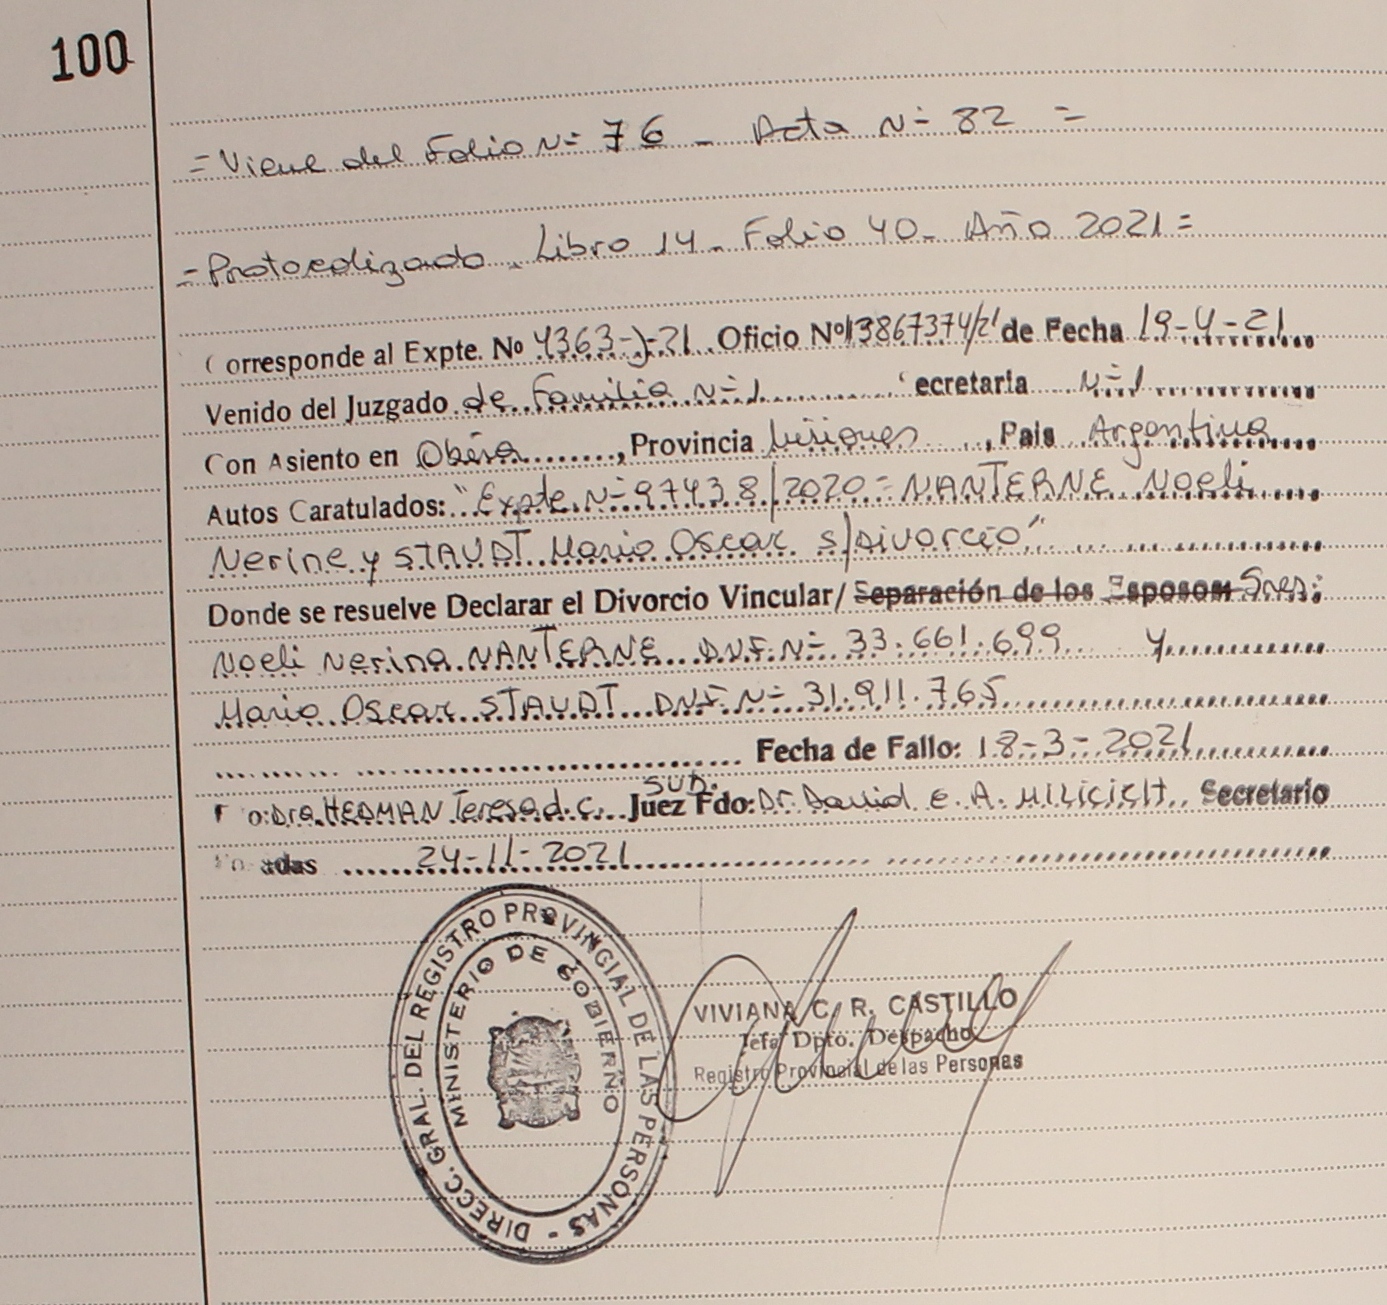 100
= Viene del Folio N= 76 - Acta N= 82 =
= Protocolizado. Libro 14 - Folio 40 - Año 2021 =
Corresponde al Expte. Nº 4363-J-21 Oficio Nº 13867374/21 de Fecha 19-4-21
Venido del Juzgado de Familia N=1 ecretaria N=1
Con Asiento en Oberá, Provincia Misiones, Pais Argentina
Autos Caratulados: "Expte. N= 97438/2020 = NANTERNE Noeli
Nerine y STAUDT Mario Oscar s/Divorcio"
Donde se resuelve Declarar el Divorcio Vincular/ Separación de los Esposom Sres:
Noeli Nerina NANTERNE D.N.I. N= 33.661.699 y
Mario Oscar STAUDT DNI N= 31.911.765
Fecha de Fallo: 18-3-2021
Dra. HEDMAN Teresa d.C. Juez SUB. Fdo: Dr. David E. A. MILICICH Secretario
adas 24-11-2021
DIRECC. GRAL. DEL REGISTRO PROVINCIAL DE LAS PERSONAS -
MINISTERIO DE GOBIERNO
VIVIANA C. R. CASTILLO
Jefa Dpto. Despacho
Registro Provincial de las Personas